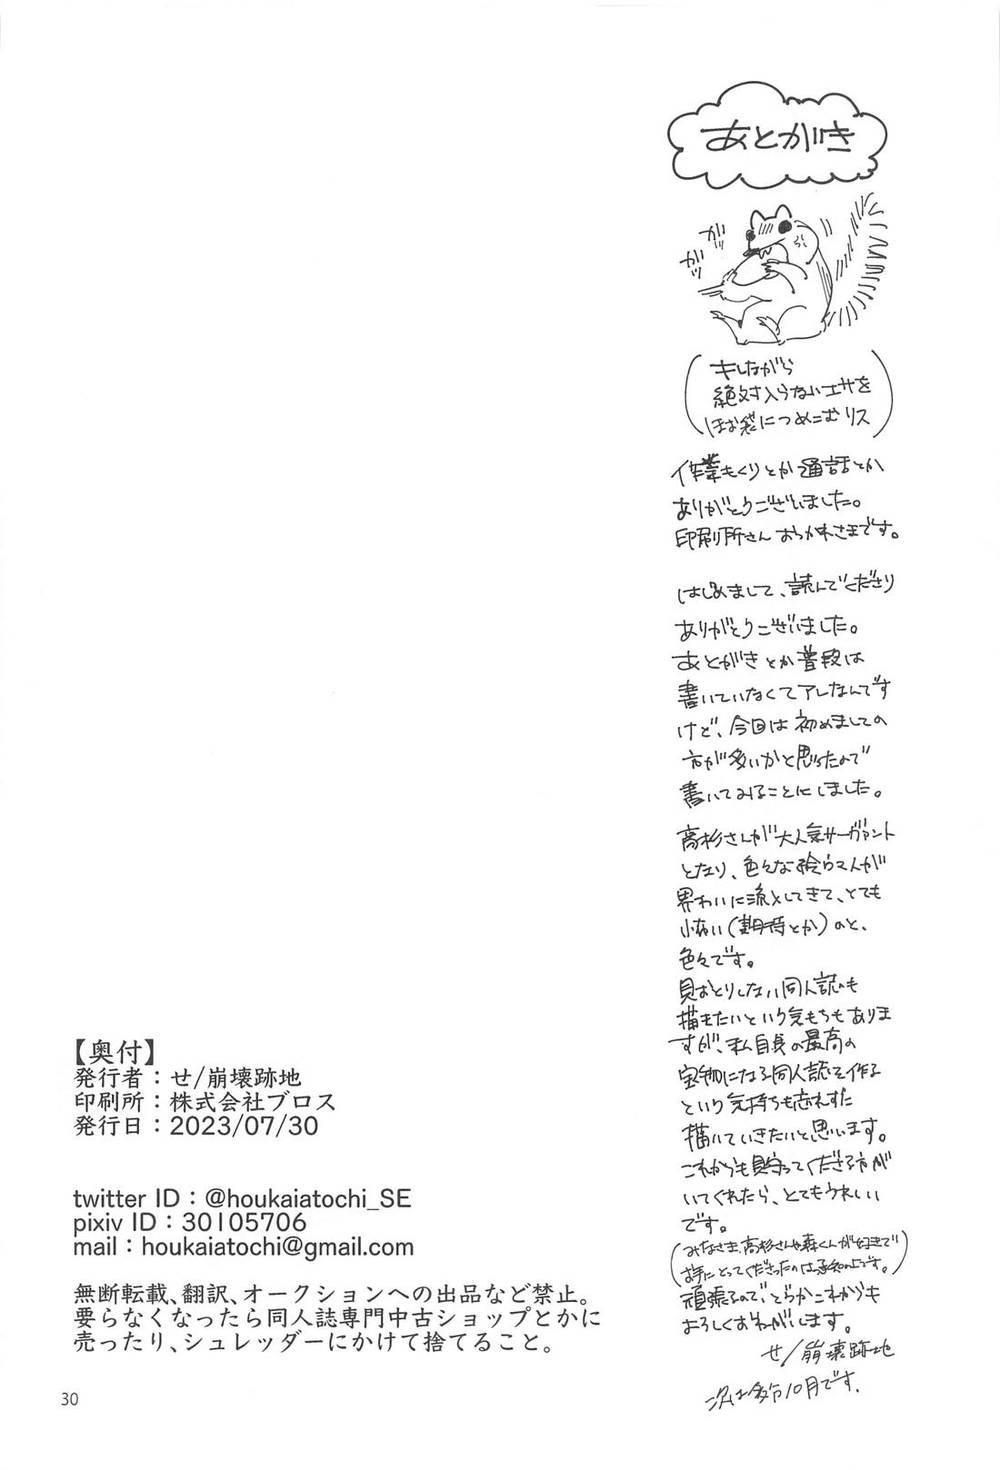 あとがき
ガッ
ガッ
キレながら
絶対入らないエサを
ほお袋につめこむリス
作業もくりとか通話とか
ありがとうございました。
印刷所さんおつかれさまです。
はじめまして、読んでくださり
ありがとうございました。
あとがきとか普段は
書いていなくてアレなんです
けど、今回は初めましての
方が多いかと思ったので
書いてみることにしました。
高杉さんが大人気サーヴァント
となり、色々な
界わいに流入してきて、とても
(期待とか)のと、
色々です。
見おとりしない同人誌も
描きたいという気もちもありま
すが、私自身の最高の
宝物になる同人誌を作る
という気持ちも忘れずに
描いていきたいと思います。
これからも見守ってくださる方が
いてくれたら、とてもうれしい
です。
(みなさま、高杉さんや森くんが好きで
お手にとってくださったのは承知の上です。)
頑張るので、どうかこれからも
よろしくおねがいします。
せ/崩壊跡地
次は多分10月です。
【奥付】
発行者：せ/崩壊跡地
印刷所：株式会社ブロス
発行日：2023/07/30
twitter ID：@houkaiatochi_SE
pixiv ID：30105706
mail：houkaiatochi@gmail.com
無断転載、翻訳、オークションへの出品など禁止。
要らなくなったら同人誌専門中古ショップとかに
売ったり、シュレッダーにかけて捨てること。
30